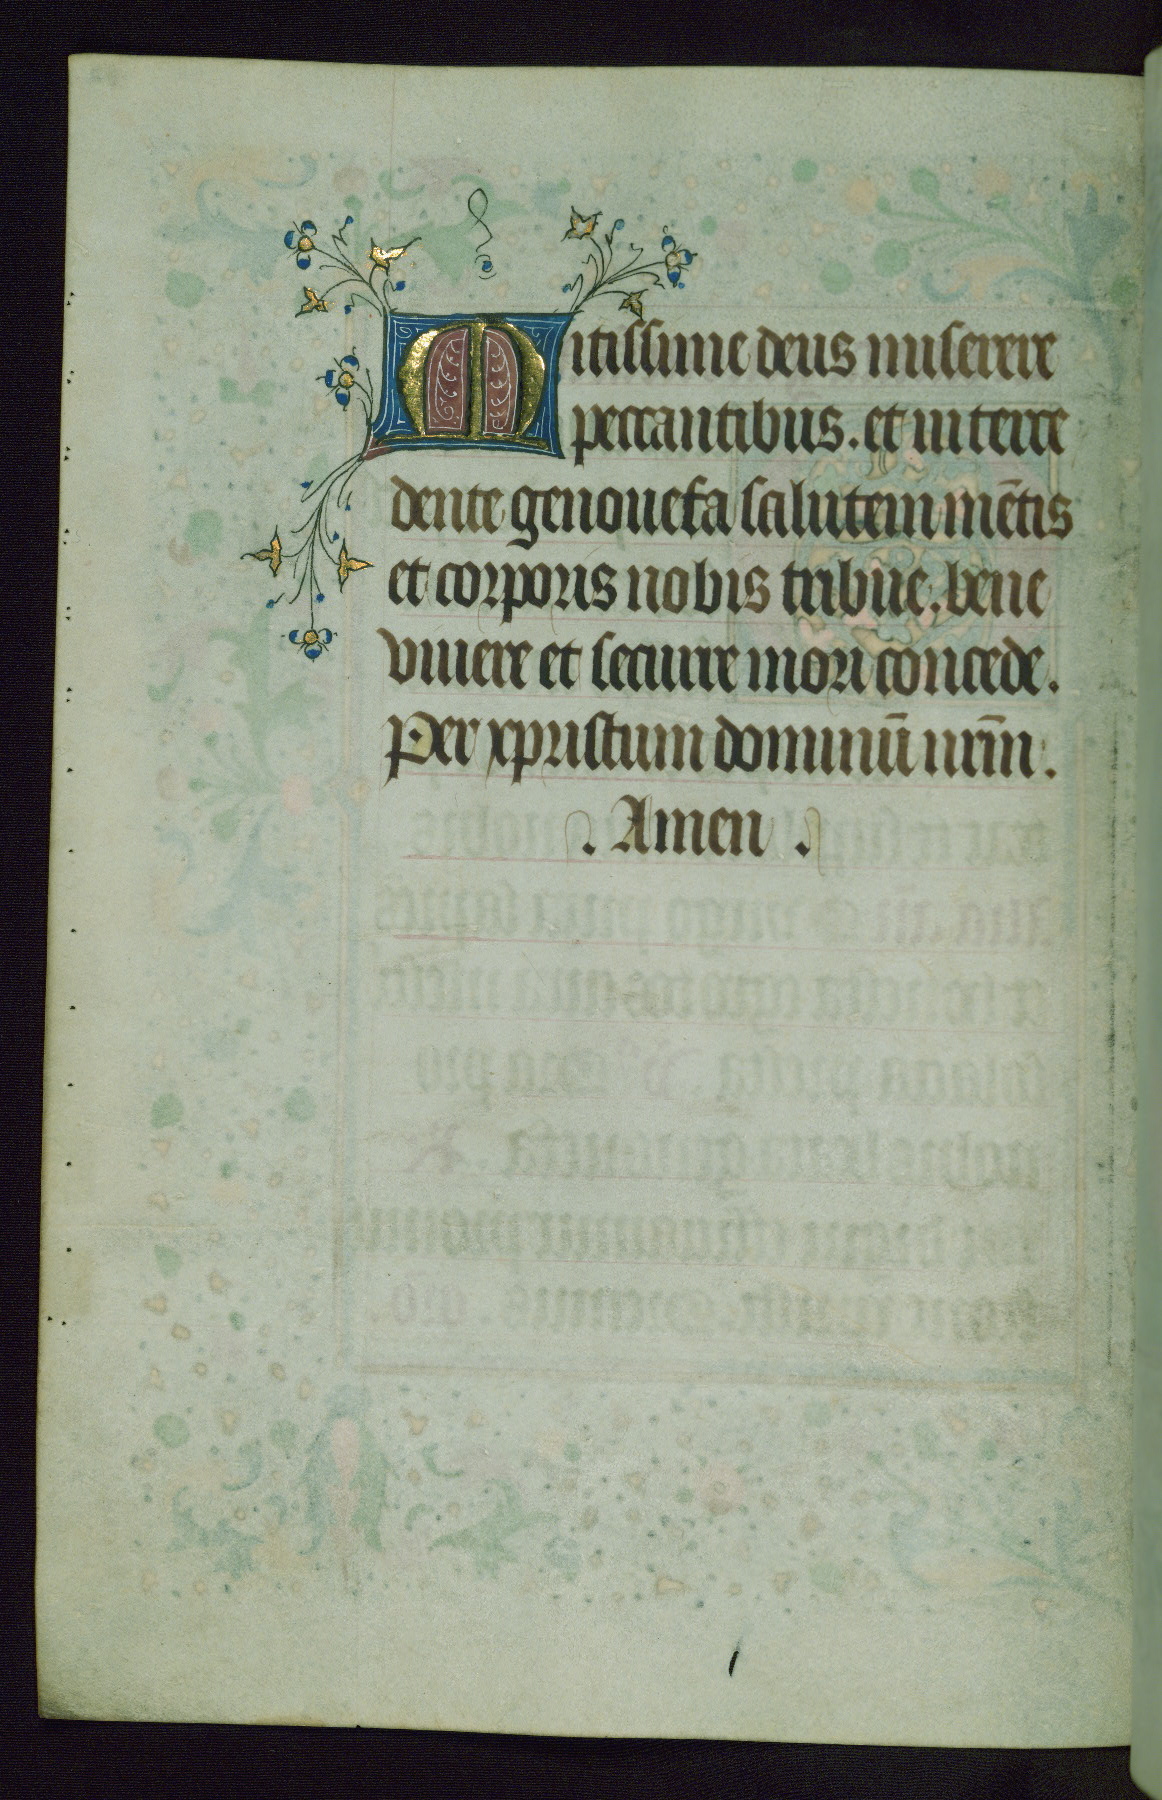 Mitissime deus miserere
peccantibus. et interce
dente genouefa salutem mētis
et corporis nobis tribue. bene
viuere et secure mori concede.
Per xpristum dominū nrm̄.
. Amen .